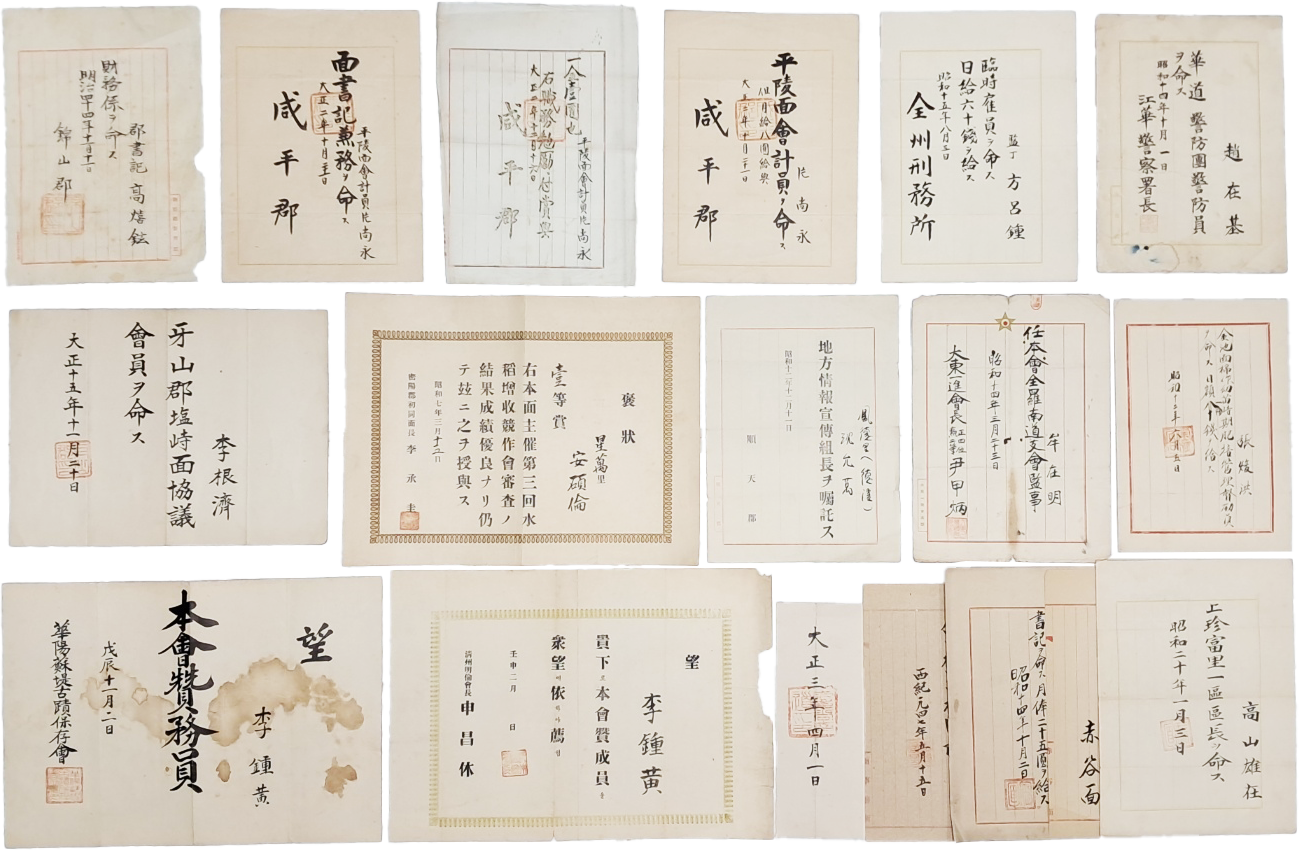 郡書記 高
財務係ヲ命ス
錦山郡
平陵面會計員 片尚永
面書記兼務ヲ命ス
大正二年十月二十一日
咸平郡
平陵面會計員片尚永
一金壹圓也
右職務勉勵ニ付賞與
咸平郡
片尚永
平陵面會計員ヲ命ス
但月給八圓給與
咸平郡
監丁 方呂鍾
臨時雇員ヲ命ス
日給六十錢ヲ給ス
昭和十五年八月三日
全州刑務所
趙在基
華道警防團警防員
ヲ命ス
昭和十四年十月一日
江華警察署長
李根濟
牙山郡塩峙面協議
會員ヲ命ス
大正十五年十一月二十日
褒狀
星萬里
安碩倫
壹等賞
右本面主催第三回水
稻增收競作會審査ノ
結果成績優良ナリ仍
テ玆ニ之ヲ授與ス
昭和七年三月十五日
密陽郡初同面長 李承圭
地方情報宣傳組長ヲ囑託ス
昭和十二年十二月十一日
順天郡
牟在明
任本會全羅南道支會監事
昭和十四年三月二十三日
大東一進會長 尹甲炳
張
昭和十三年六月五日
望
李鍾黃
本會贊務員
戊辰十一月二日
華陽蘇堤古蹟保存會
望
李鍾黃
員下로本會贊成員을
衆望에依하야薦홈
壬申二月 日
清州明倫會長 申昌休
大正三年四月一日
五月十五日
書記ヲ命ス月俸二十五圓ヲ給ス
昭和十四年十月二日
赤谷面
高山雄在
上珍富里一區區長ヲ命ス
昭和二十年一月三日